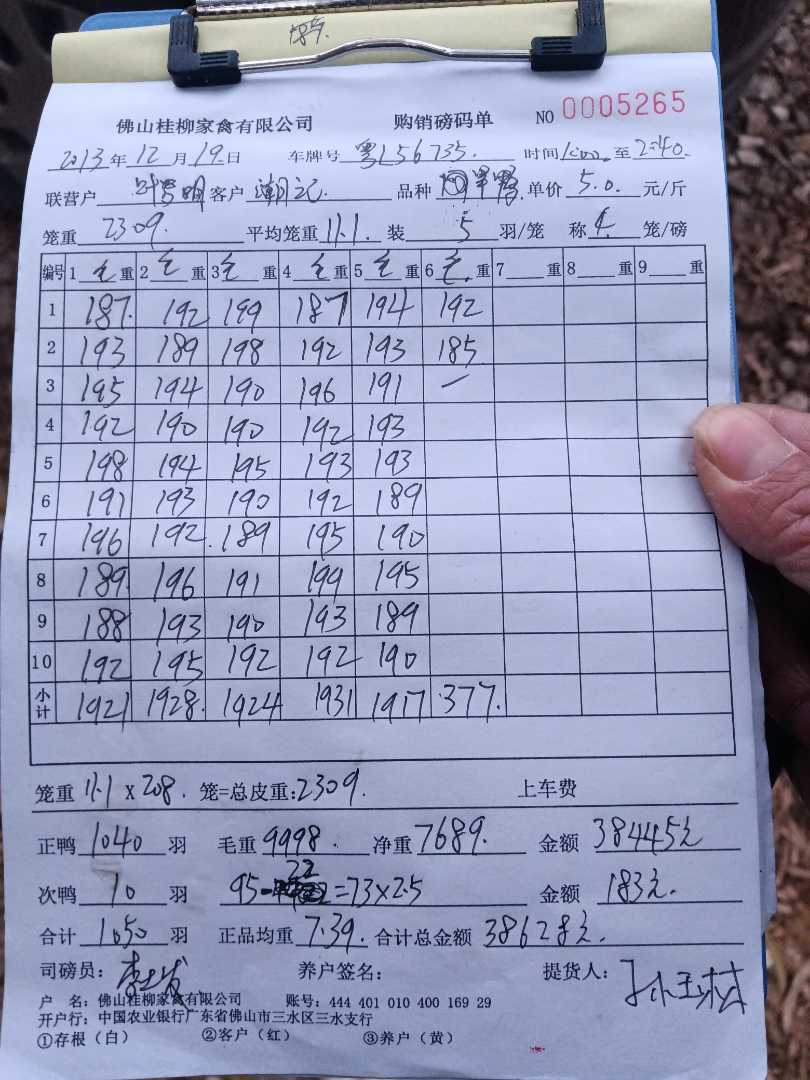 佛山桂柳家禽有限公司 购销磅码单 NO 0005265
2013年12月19日 车牌号 粤L56735. 时间 1:00 至 2:40.
联营户 叶号明 客户 潮记. 品种 单价 5.0. 元/斤
笼重 2309. 平均笼重 11.1. 装 5 羽/笼 称 4 笼/磅
编号 1 毛 重 2 毛 重 3 毛 重 4 毛 重 5 毛 重 6 毛 重 7 重 8 重 9 重
1 187. 192 199 187 194 192
2 193 189 198 192 193 185
3 195 194 190 196 191 —
4 192 190 190 192 193
5 198 194 195 193 193
6 191 193 190 192 189
7 196 192. 189 195 190
8 189. 196 191 199 195
9 188 193 190 193 189
10 192 195 192 192 190
小计 1921 1928. 1924 1931 1917 377.
笼重 11.1 x 208. 笼=总皮重: 2309. 上车费
正鸭 1040 羽 毛重 9998. 净重 7689. 金额 38445元
次鸭 10 羽 95-22=73x2.5 金额 183元.
合计 1050 羽 正品均重 7.39. 合计总金额 38628元.
司磅员: 养户签名: 提货人:
户 名: 佛山桂柳家禽有限公司 账号: 444 401 010 400 169 29
开户行: 中国农业银行广东省佛山市三水区三水支行
①存根（白） ②客户（红） ③养户（黄）